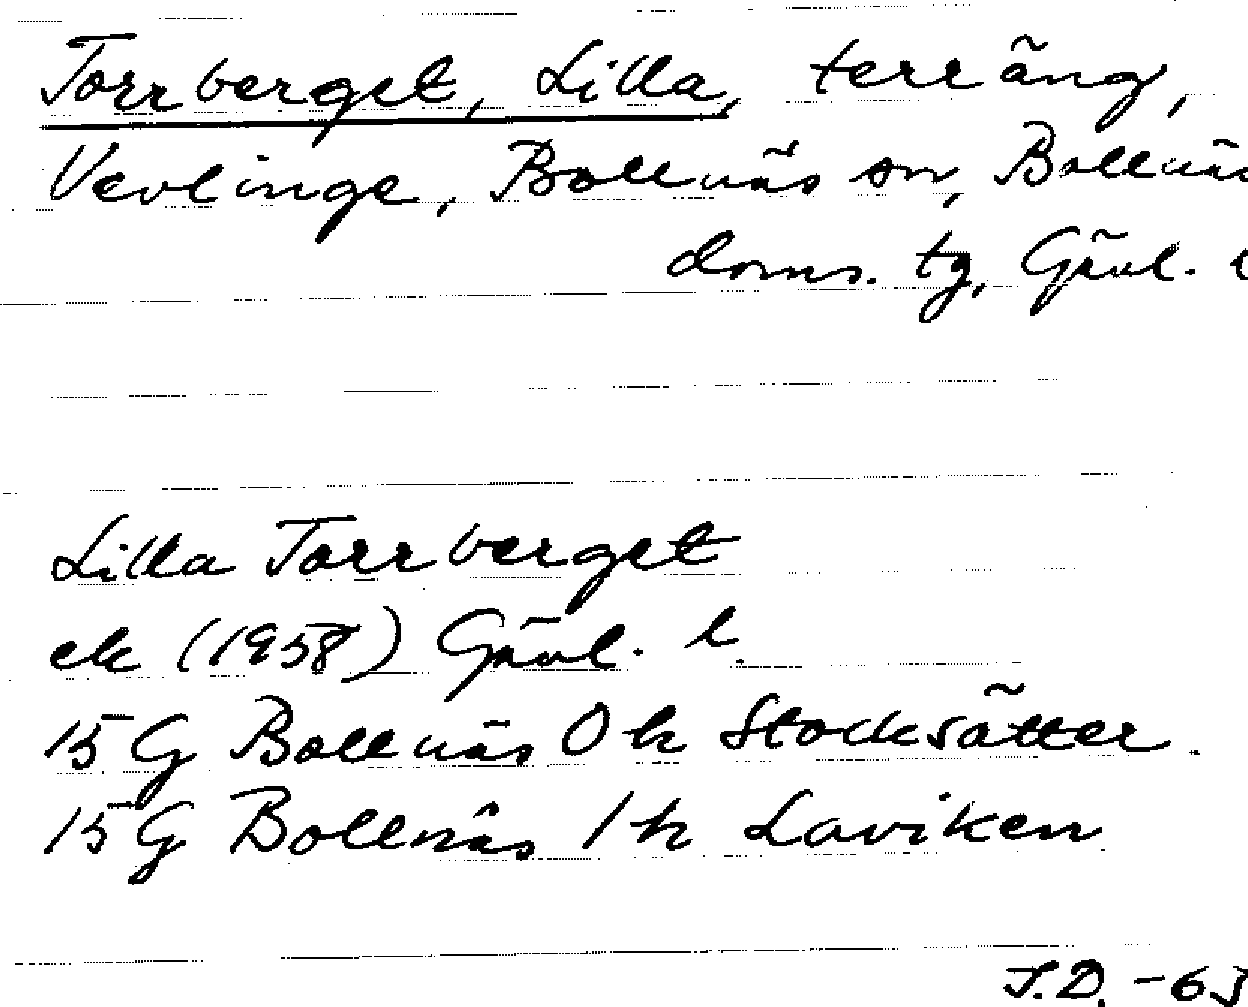 Torrberget, Lilla, terräng,
Vevlinge, Bollnäs sn, Bollnäs
doms. tg, Gävl. l
Lilla Torrberget
ek (1958) Gävl. l.
15 G Bollnäs 0 h Stocksätter.
15 G Bollnäs 1 h Laviken
J.D. -63